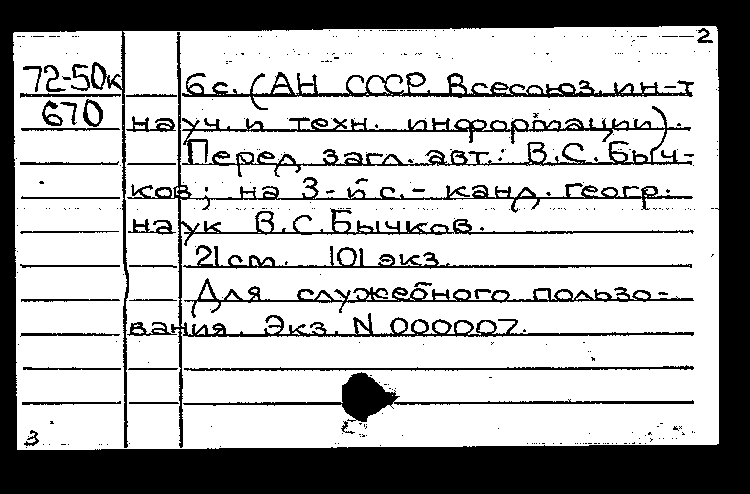 2
72-50к 6 с. (АН СССР. Всесоюз. ин-т
670 науч. и техн. информации).
Перед загл. авт.: В.С. Быч-
ков; на 3-й с. - канд. геогр.
наук В.С. Бычков.
21 cm. 101 экз.
Для служебного пользо-
вания. Экз. N 000007.
3